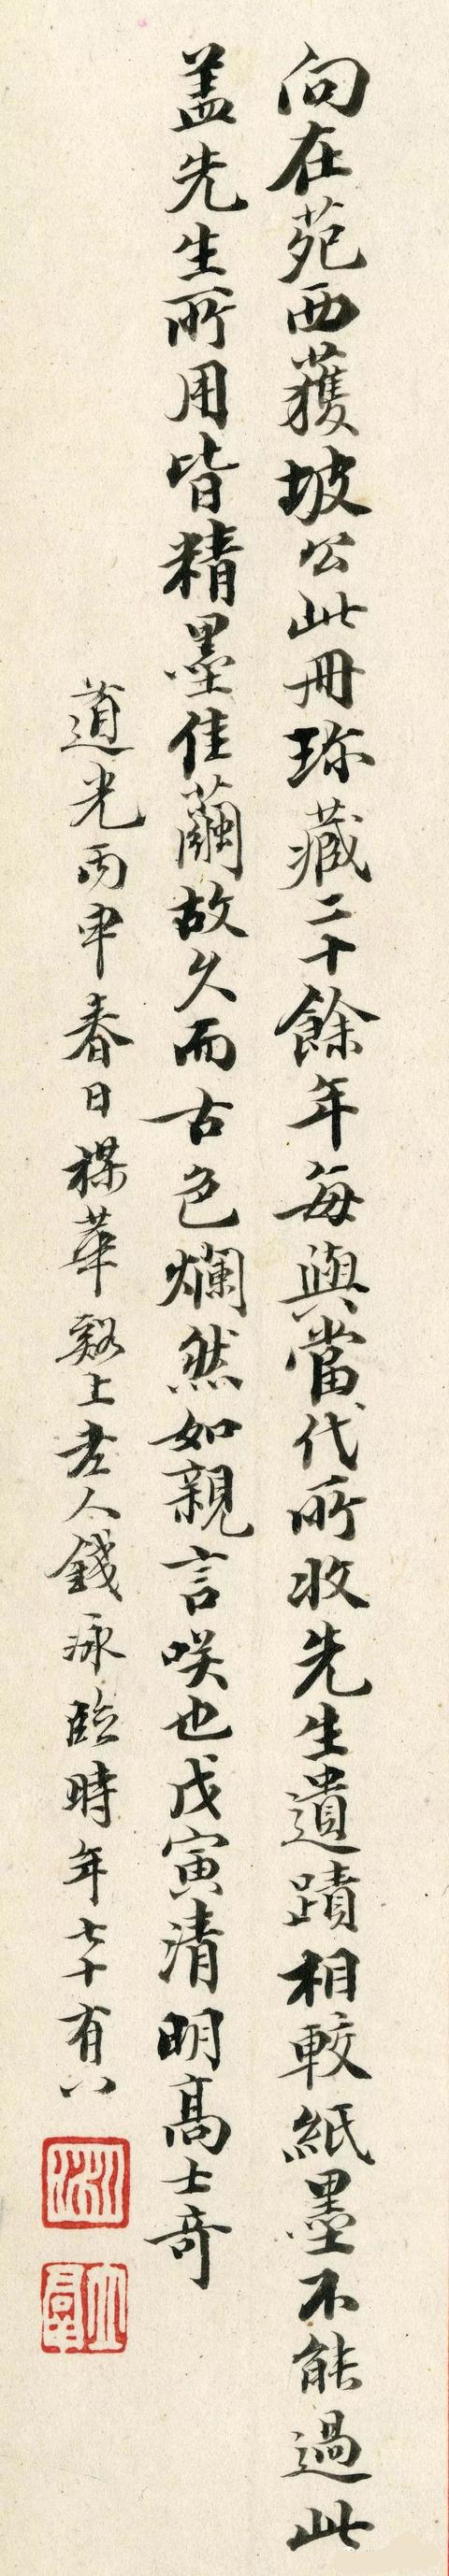 向在苑西獲坡公此冊珎藏二十餘年每與當代所收先生遺蹟相較紙墨不能過此
盖先生所用皆精墨佳繭故久而古色爛然如親言咲也戊寅清明高士奇
道光丙申春日楳華谿上老人錢泳臨時年七十有八